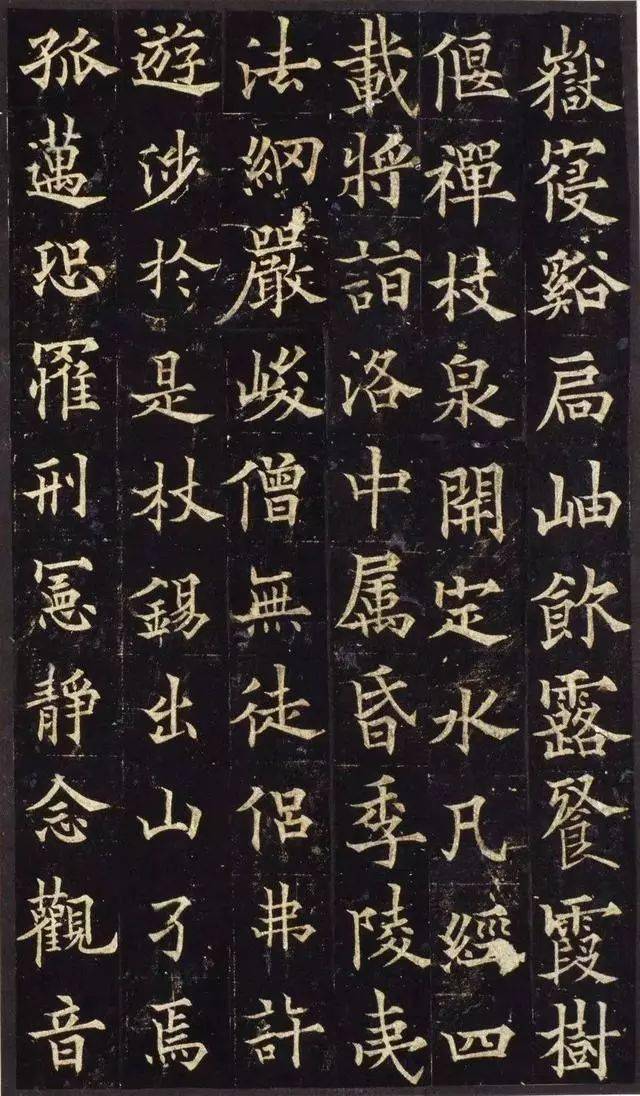 嶽寑谿扃岫飲露飡霞樹
偃禪枝泉開定水凡經四
載將詣洛中属昏季陵夷
法網嚴峻僧無徒侶弗許
遊涉於是杖錫出山孑焉
孤邁恐罹刑憲靜念觀音